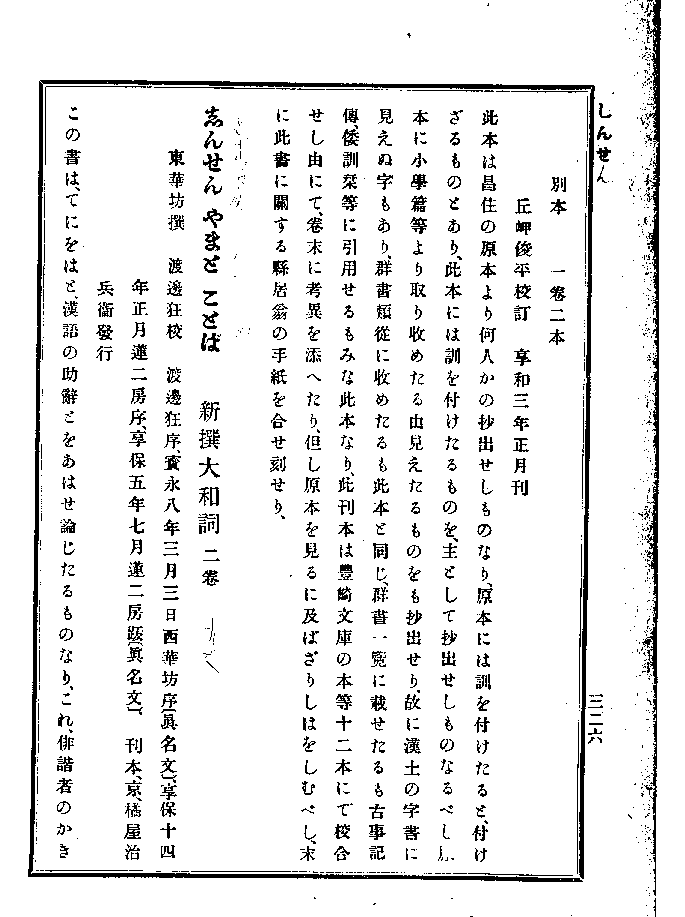 しんせん
三二六
別本 一卷二本
丘岬俊平校訂 享和三年正月刊
此本は昌住の原本より何人かの抄出せしものなり、原本には訓を付けたると、付け
ざるものとあり、此本には訓を付けたるものを、主として抄出せしものなるべし、
本に小學篇等より取り收めたる由見えたるものをも抄出せり、故に漢土の字書に
見えぬ字もあり、群書類從に收めたるも此本と同じ、群書一覽に載せたるも古事記
傳、倭訓栞等に引用せるもみな此本なり、此刊本は豐崎文庫の本等十二本にて校合
せし由にて、卷末に考異を添へたり、但し原本を見るに及ばざりしはをしむべし、末
に此書に關する縣居翁の手紙を合せ刻せり、
志んせん やまと ことば 新撰大和詞 二卷
東華坊撰 渡邊狂校 渡邊狂序、寳永八年三月三日西華坊序(眞名文)、享保十四
年正月蓮二房序、享保五年七月蓮二房跋(眞名文)、刊本、京、橘屋治
兵衞發行
この書は、てにをはと、漢語の助辭とをあはせ論じたるものなり、これ、俳諧者のかき